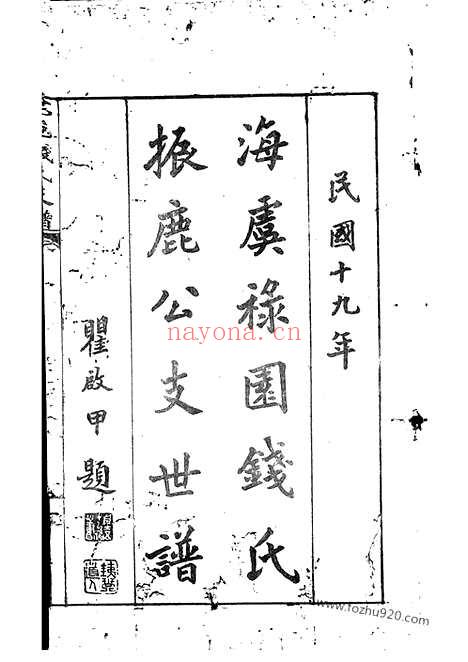 民國十九年
海虞祿園錢氏
振鹿公支世譜
瞿啟甲題
nayona.cn
www.fozhu920.com